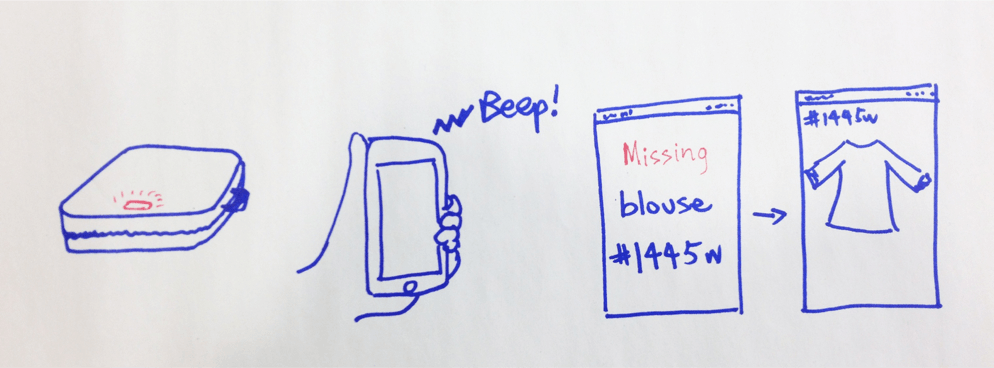 Beep!
Missing
blouse
#1445w
#1445w